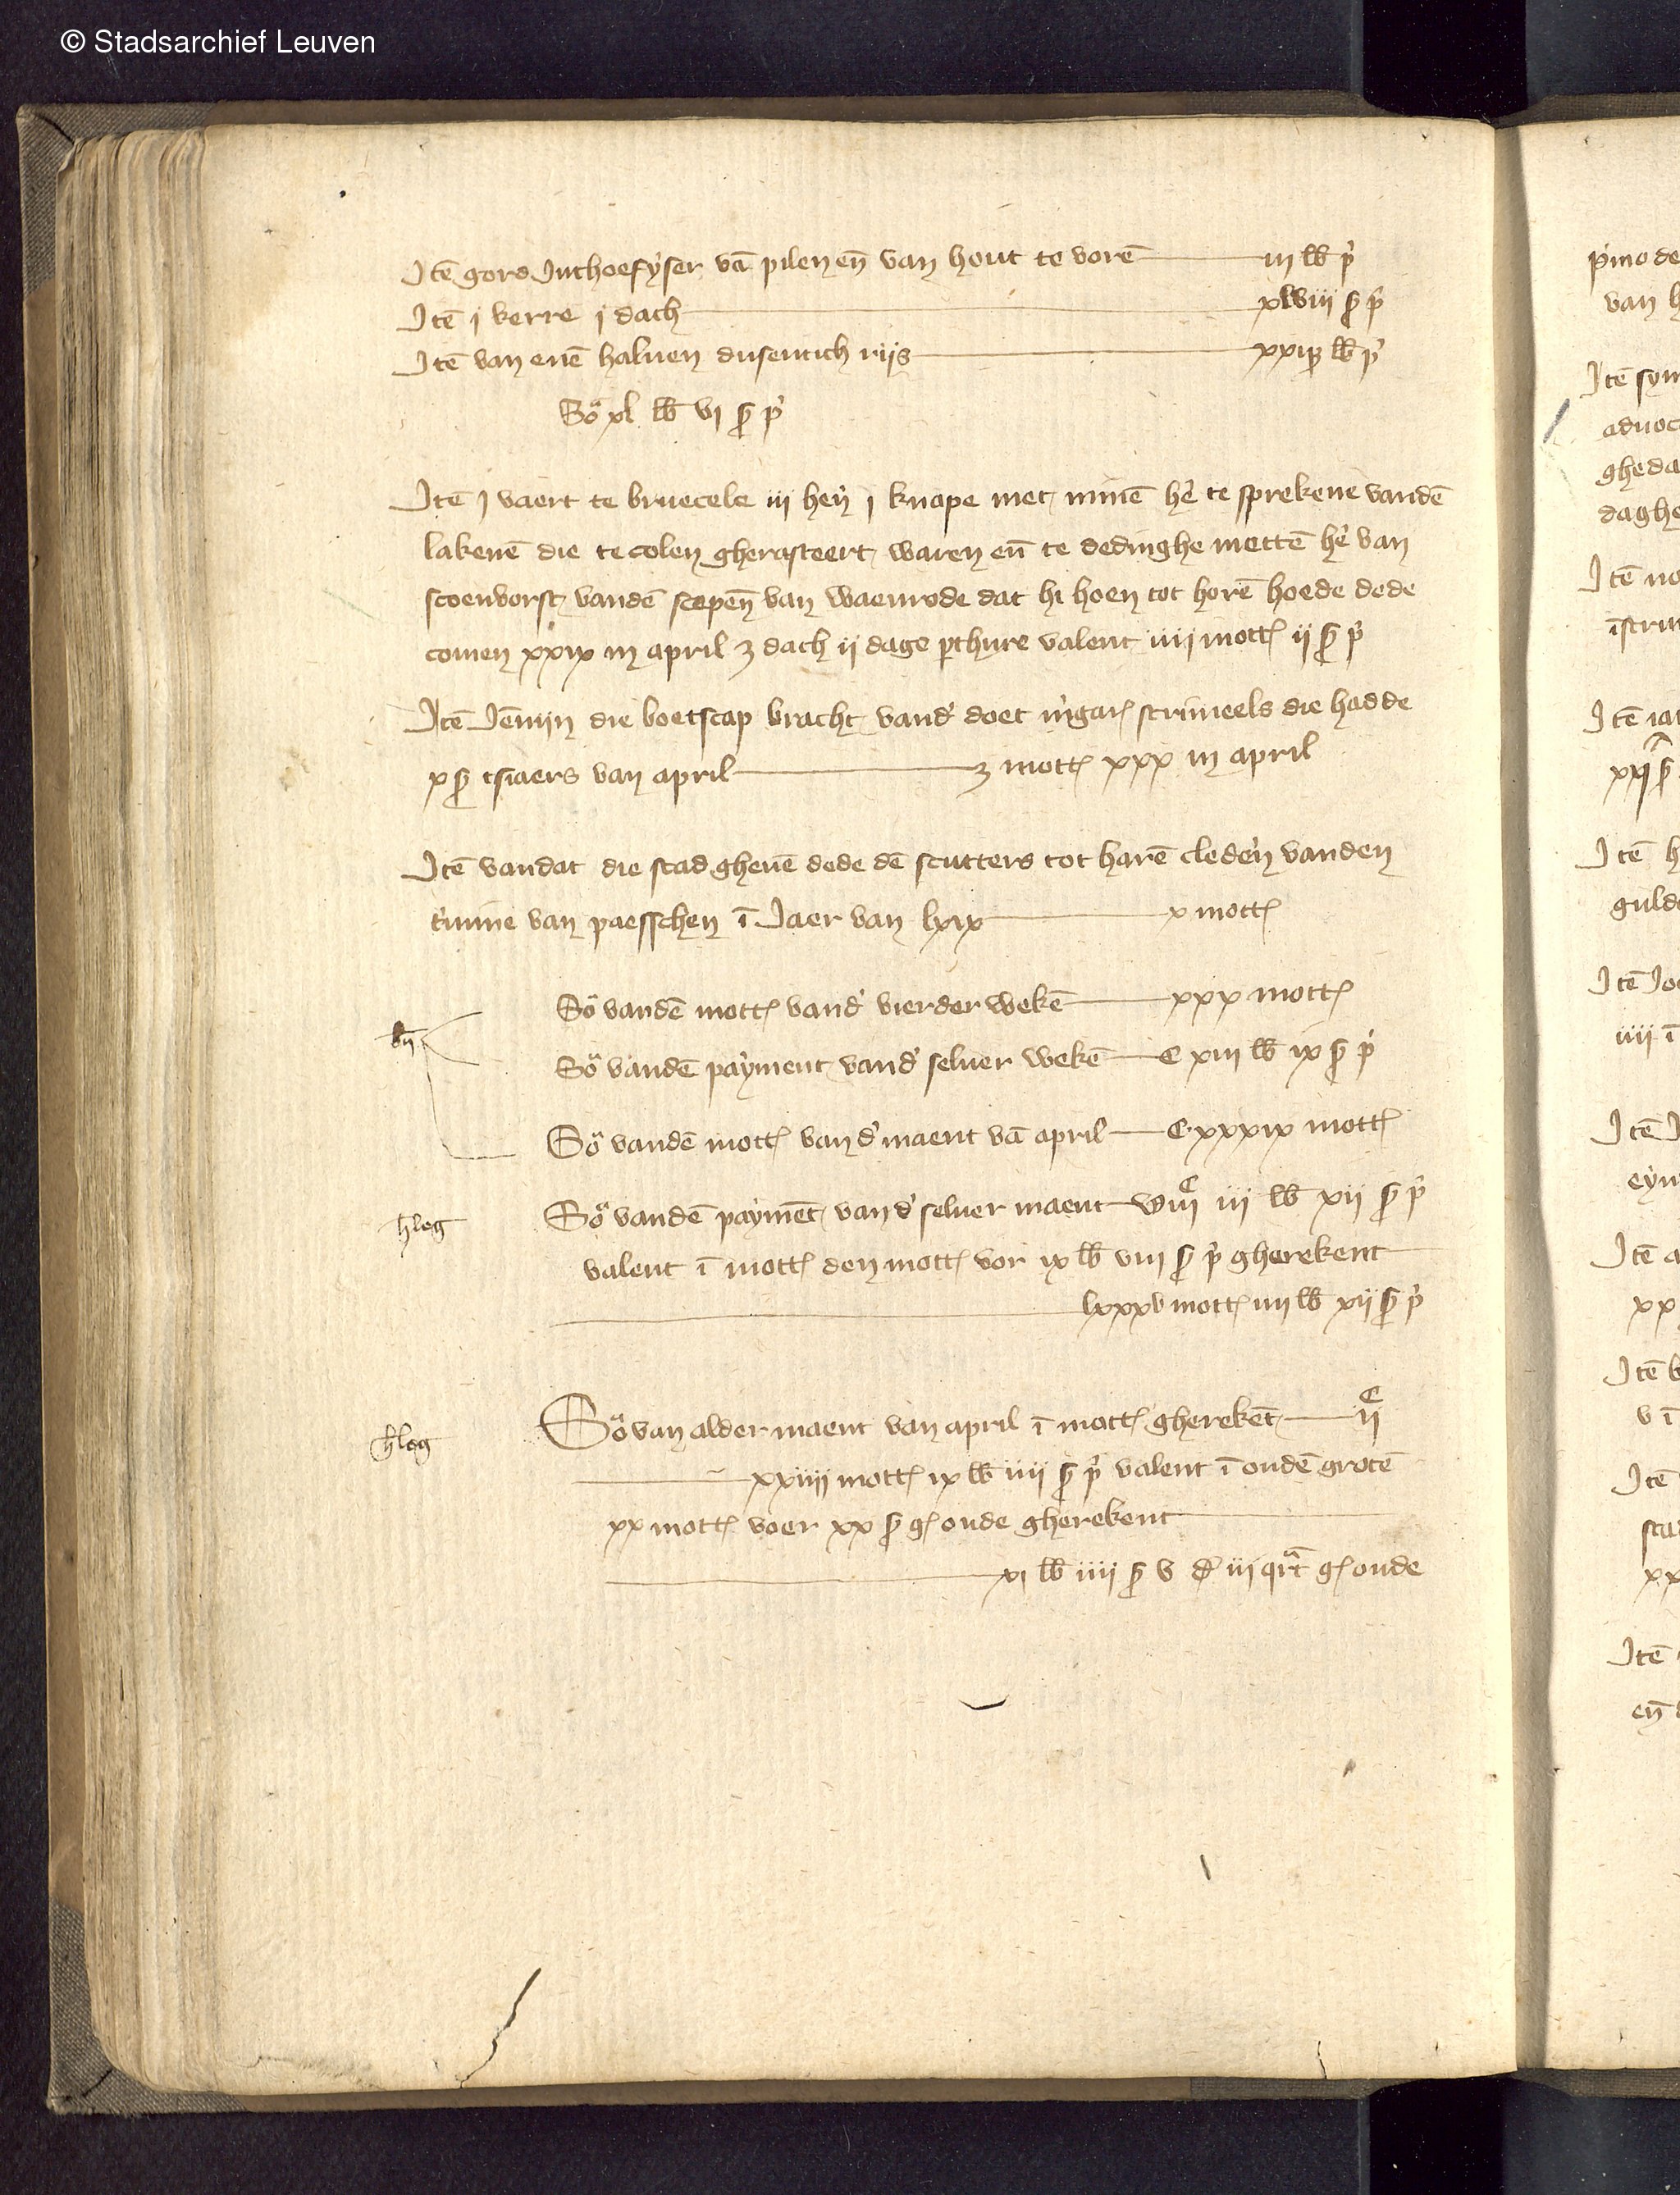 © Stadsarchief Leuven
Itē goro Inthoefyser vā pilen en̄ van hout te vorē iii lb̄ p̓
Itē j kerre j dach xlviii s̄ p̓
Itē van enē halven dusentich rijs lb̄ p̓
Sō xl lb̄ vi s̄ p̓
Itē j vaert te bruecele iij hen̓ j knape met minē he̓ te sprekene vandē
lakenē die te colen gherasteert waren en̄ te dedinghe mettē he̓ van
scoenvorst vandē scepen̄ van waenrode dat hi hoen tot horē hoede dede
comen xxix in april ʒ dach ij dage perthure valent iiij mott ij s̄ p̓
Itē Iēnnijn die boetscap bracht vand̓ doet scrineels die hadde
x s̄ tsiaers van april ʒ mott xxx in april
Itē vandat die stad ghevē dede dē scutters tot harē cleder̓n vanden
t̓mine van paesschen ī Jaer van lxix x mott
Sō vandē mott vand̓ vierder wekē xxx mott
Sō vandē payment vand̓ selver wekē C xiii lb̄ ix s̄ p̓
Sō vandē mott vand̓ maent vā april C xxxix mott
Sō vandē paymēt vand̓ selver maent viiC iij lb̄ xij s̄ p̓
valent ī mott den mott vor ix lb̄ viii s̄ p̓ gherekent
lxxxv mott iiii lb̄ xij s̄ p̓
Sō van alder maent van april ī mott gherekēt ijC
xxiiij mott ix lb̄ iiij s̄ p̓ valent ī oudē grotē
xx mott voer xx s̄ g oude gherekent
xi lb̄ iiij s̄ v d̓ iij qrt g oude
p̓mo de
van h
Itē sym
advoc
gheda
daghe
Itē no
īstru
Itē iat
Itē h
guld
Itē Jo
iiij ī
Itē J
eyn
Itē a
xx
Itē b
v ī
Itē
sta
xx
Itē
en̄